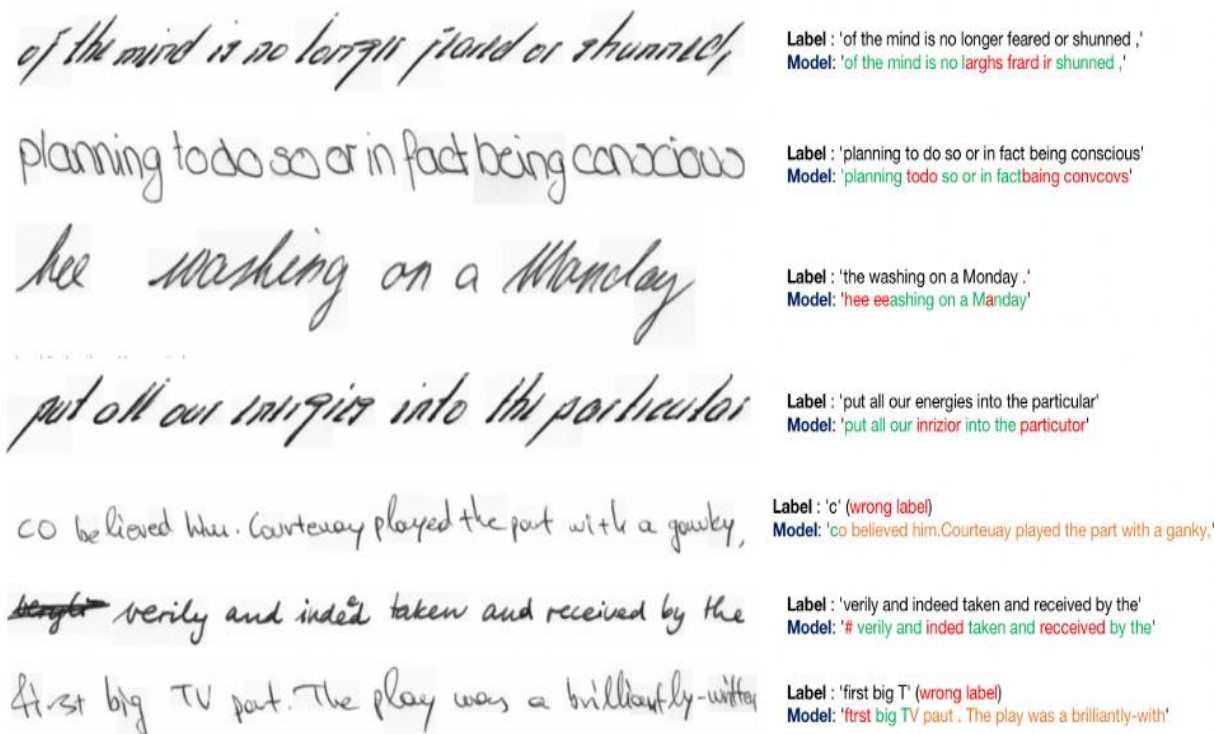 of the mind is no longer feared or shunned,
Label : 'of the mind is no longer feared or shunned ,'
Model: 'of the mind is no larghs frard ir shunned ,'
planning todo so or in fact being conscious
Label : 'planning to do so or in fact being conscious'
Model: 'planning todo so or in factbaing convcovs'
hee washing on a Manday
Label : 'the washing on a Monday .'
Model: 'hee eeashing on a Manday'
put all our energies into the particular
Label : 'put all our energies into the particular'
Model: 'put all our inrizior into the particutor'
co believed him. Courtenay played the part with a gawky,
Label : 'c' (wrong label)
Model: 'co believed him.Courteuay played the part with a ganky,'
verily and indeed taken and received by the
Label : 'verily and indeed taken and received by the'
Model: '# verily and inded taken and recceived by the'
first big TV part. The play was a brilliantly-written
Label : 'first big T' (wrong label)
Model: 'ftrst big TV paut . The play was a brilliantly-with'